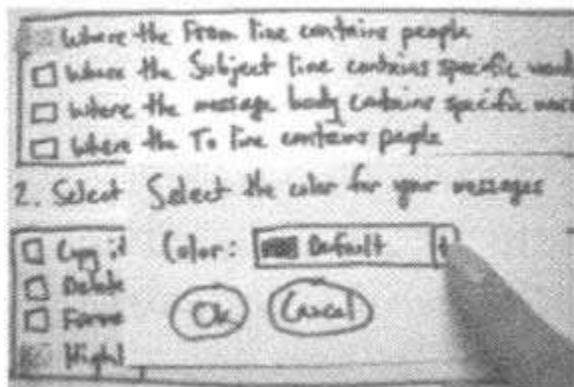 Where the From line contains people
Where the Subject line contains specific
Where the message body contains specific
Where the To line contains people
2. Select
Select the color for your messages
Copy it
Color: Default
Delete
Ok Cancel